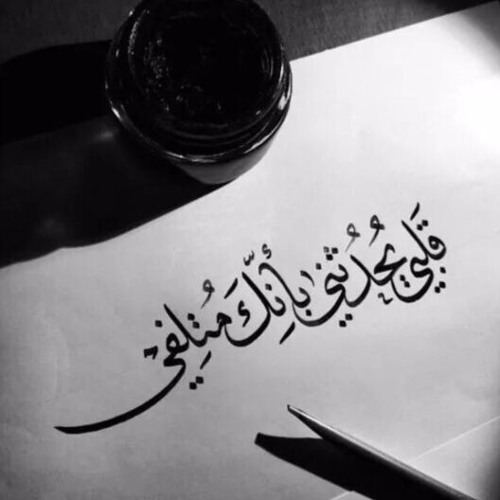 قَلبي يُحَدِّثُني بأنّكَ مُتلِفي